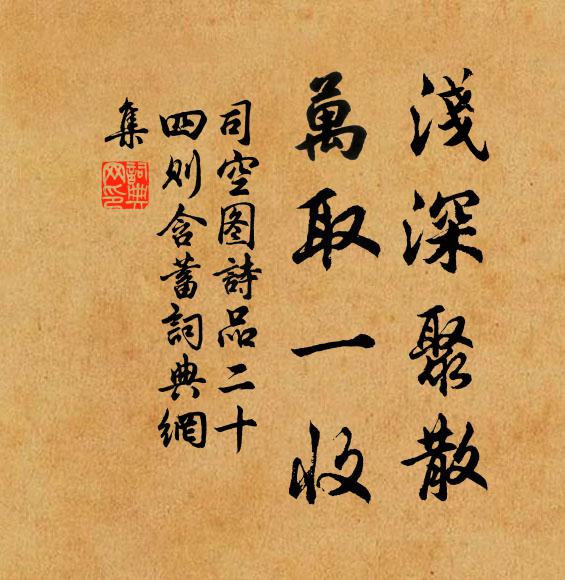 淺深聚散
萬取一收
司空图詩品二十
四则含蓄詞典網
集
詞典
网印